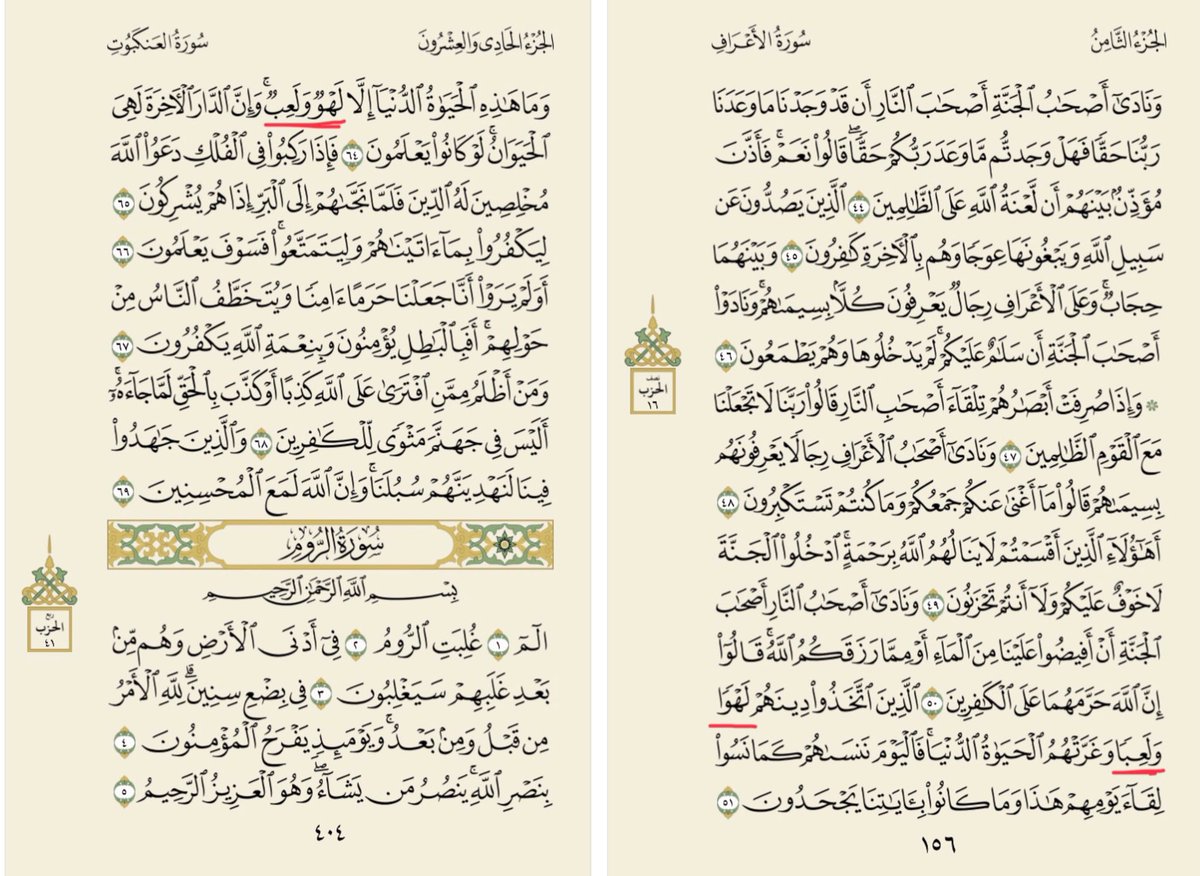 الجُزْءُ الثَّامِنُ سُورَةُ الأَعْرَافِ
وَنَادَىٰٓ أَصْحَٰبُ ٱلْجَنَّةِ أَصْحَٰبَ ٱلنَّارِ أَن قَدْ وَجَدْنَا مَا وَعَدَنَا
رَبُّنَا حَقًّا فَهَلْ وَجَدتُّم مَّا وَعَدَ رَبُّكُمْ حَقًّا ۖ قَالُوا۟ نَعَمْ ۚ فَأَذَّنَ
مُؤَذِّنٌۢ بَيْنَهُمْ أَن لَّعْنَةُ ٱللَّهِ عَلَى ٱلظَّٰلِمِينَ ٤٤ ٱلَّذِينَ يَصُدُّونَ عَن
سَبِيلِ ٱللَّهِ وَيَبْغُونَهَا عِوَجًا وَهُم بِٱلْءَاخِرَةِ كَٰفِرُونَ ٤٥ وَبَيْنَهُمَا
حِجَابٌ ۚ وَعَلَى ٱلْأَعْرَافِ رِجَالٌ يَعْرِفُونَ كُلًّۢا بِسِيمَىٰهُمْ ۚ وَنَادَوْا۟
أَصْحَٰبَ ٱلْجَنَّةِ أَن سَلَٰمٌ عَلَيْكُمْ ۚ لَمْ يَدْخُلُوهَا وَهُمْ يَطْمَعُونَ ٤٦
نصف
الحزب
١٦
۞ وَإِذَا صُرِفَتْ أَبْصَٰرُهُمْ تِلْقَآءَ أَصْحَٰبِ ٱلنَّارِ قَالُوا۟ رَبَّنَا لَا تَجْعَلْنَا
مَعَ ٱلْقَوْمِ ٱلظَّٰلِمِينَ ٤٧ وَنَادَىٰٓ أَصْحَٰبُ ٱلْأَعْرَافِ رِجَالًا يَعْرِفُونَهُم
بِسِيمَىٰهُمْ قَالُوا۟ مَآ أَغْنَىٰ عَنكُمْ جَمْعُكُمْ وَمَا كُنتُمْ تَسْتَكْبِرُونَ ٤٨
أَهَٰٓؤُلَآءِ ٱلَّذِينَ أَقْسَمْتُمْ لَا يَنَالُهُمُ ٱللَّهُ بِرَحْمَةٍ ۚ ٱدْخُلُوا۟ ٱلْجَنَّةَ
لَا خَوْفٌ عَلَيْكُمْ وَلَآ أَنتُمْ تَحْزَنُونَ ٤٩ وَنَادَىٰٓ أَصْحَٰبُ ٱلنَّارِ أَصْحَٰبَ
ٱلْجَنَّةِ أَنْ أَفِيضُوا۟ عَلَيْنَا مِنَ ٱلْمَآءِ أَوْ مِمَّا رَزَقَكُمُ ٱللَّهُ ۚ قَالُوٓا۟
إِنَّ ٱللَّهَ حَرَّمَهُمَا عَلَى ٱلْكَٰفِرِينَ ٥٠ ٱلَّذِينَ ٱتَّخَذُوا۟ دِينَهُمْ لَهْوًا
وَلَعِبًا وَغَرَّتْهُمُ ٱلْحَيَوٰةُ ٱلدُّنْيَا ۚ فَٱلْيَوْمَ نَنسَىٰهُمْ كَمَا نَسُوا۟
لِقَآءَ يَوْمِهِمْ هَٰذَا وَمَا كَانُوا۟ بِـَٔايَٰتِنَا يَجْحَدُونَ ٥١
١٥٦
الجُزْءُ الحَادِى وَالعِشْرُونَ سُورَةُ العَنكَبُوتِ
وَمَا هَٰذِهِ ٱلْحَيَوٰةُ ٱلدُّنْيَآ إِلَّا لَهْوٌ وَلَعِبٌ ۚ وَإِنَّ ٱلدَّارَ ٱلْءَاخِرَةَ لَهِىَ
ٱلْحَيَوَانُ ۚ لَوْ كَانُوا۟ يَعْلَمُونَ ٦٤ فَإِذَا رَكِبُوا۟ فِى ٱلْفُلْكِ دَعَوُا۟ ٱللَّهَ
مُخْلِصِينَ لَهُ ٱلدِّينَ فَلَمَّا نَجَّىٰهُمْ إِلَى ٱلْبَرِّ إِذَا هُمْ يُشْرِكُونَ ٦٥
لِيَكْفُرُوا۟ بِمَآ ءَاتَيْنَٰهُمْ وَلِيَتَمَتَّعُوا۟ ۖ فَسَوْفَ يَعْلَمُونَ ٦٦
أَوَلَمْ يَرَوْا۟ أَنَّا جَعَلْنَا حَرَمًا ءَامِنًا وَيُتَخَطَّفُ ٱلنَّاسُ مِنْ
حَوْلِهِمْ ۚ أَفَبِٱلْبَٰطِلِ يُؤْمِنُونَ وَبِنِعْمَةِ ٱللَّهِ يَكْفُرُونَ ٦٧
وَمَنْ أَظْلَمُ مِمَّنِ ٱفْتَرَىٰ عَلَى ٱللَّهِ كَذِبًا أَوْ كَذَّبَ بِٱلْحَقِّ لَمَّا جَآءَهُۥٓ ۚ
أَلَيْسَ فِى جَهَنَّمَ مَثْوًى لِّلْكَٰفِرِينَ ٦٨ وَٱلَّذِينَ جَٰهَدُوا۟
فِينَا لَنَهْدِيَنَّهُمْ سُبُلَنَا ۚ وَإِنَّ ٱللَّهَ لَمَعَ ٱلْمُحْسِنِينَ ٦٩
سُورَةُ الرُّومِ
بِسْمِ ٱللَّهِ ٱلرَّحْمَٰنِ ٱلرَّحِيمِ
ربع
الحزب
٤١
الٓمٓ ١ غُلِبَتِ ٱلرُّومُ ٢ فِىٓ أَدْنَى ٱلْأَرْضِ وَهُم مِّنۢ
بَعْدِ غَلَبِهِمْ سَيَغْلِبُونَ ٣ فِى بِضْعِ سِنِينَ ۗ لِلَّهِ ٱلْأَمْرُ
مِن قَبْلُ وَمِنۢ بَعْدُ ۚ وَيَوْمَئِذٍ يَفْرَحُ ٱلْمُؤْمِنُونَ ٤
بِنَصْرِ ٱللَّهِ ۚ يَنصُرُ مَن يَشَآءُ ۖ وَهُوَ ٱلْعَزِيزُ ٱلرَّحِيمُ ٥
٤٠٤